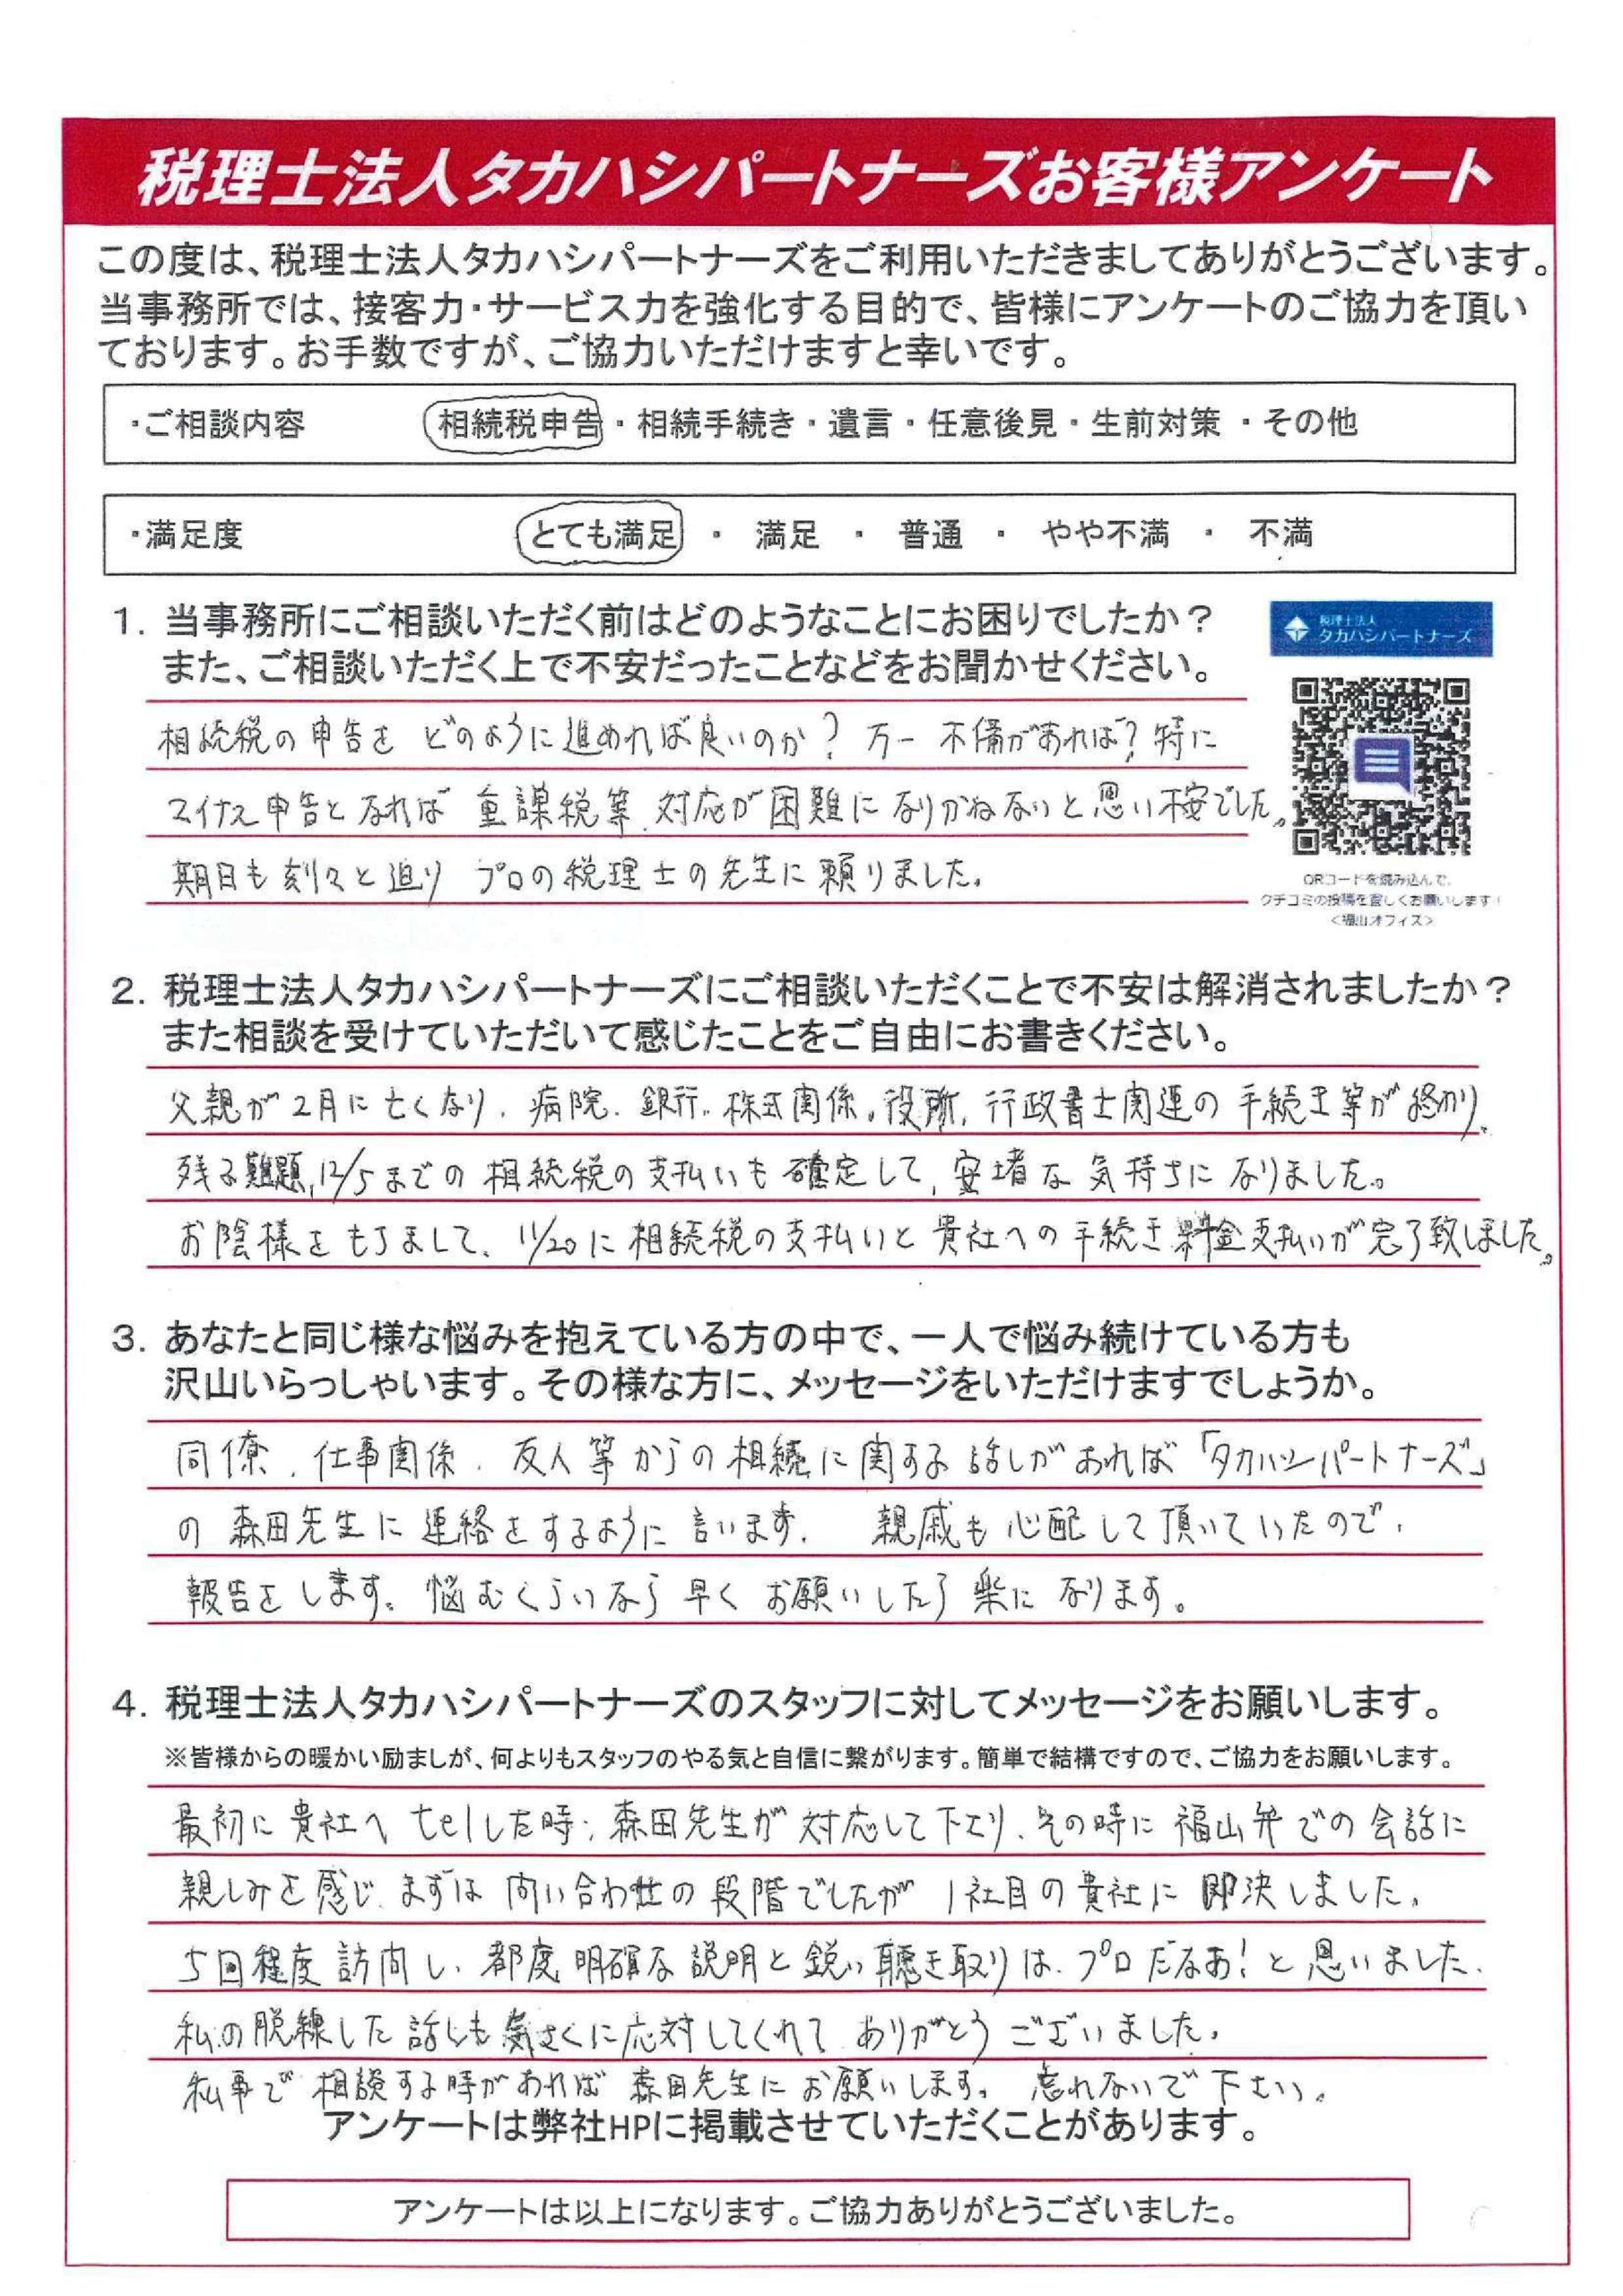 税理士法人タカハシパートナーズお客様アンケート
この度は、税理士法人タカハシパートナーズをご利用いただきましてありがとうございます。
当事務所では、接客力・サービス力を強化する目的で、皆様にアンケートのご協力を頂い
ております。お手数ですが、ご協力いただけますと幸いです。
・ご相談内容 相続税申告・相続手続き・遺言・任意後見・生前対策・その他
・満足度 とても満足 ・ 満足 ・ 普通 ・ やや不満 ・ 不満
1. 当事務所にご相談いただく前はどのようなことにお困りでしたか?
また、ご相談いただく上で不安だったことなどをお聞かせください。
税理士法人
タカハシパートナーズ
相続税の申告を どのように進めれば良いのか? 万一 不備があれば? 特に
マイナス申告となれば 重課税等、対応が困難になりかねないと思い不安でした。
期日も刻々と迫り プロの税理士の先生に頼りました。
QRコードを読み込んで、
クチコミの投稿を宜しくお願いします!
<福山オフィス>
2. 税理士法人タカハシパートナーズにご相談いただくことで不安は解消されましたか?
また相談を受けていただいて感じたことをご自由にお書きください。
父親が2月に亡くなり、病院、銀行、株式関係、役所、行政書士関連の手続き等が終わり、
残る難題、12/5までの相続税の支払いも確定して、安堵な気持ちになりました。
お陰様をもちまして、11/20に相続税の支払いと貴社への手続き料金支払いが完了致しました。
3. あなたと同じ様な悩みを抱えている方の中で、一人で悩み続けている方も
沢山いらっしゃいます。その様な方に、メッセージをいただけますでしょうか。
同僚、仕事関係、友人等からの相続に関する話しがあれば「タカハシパートナーズ」
の森田先生に連絡をするように言います。 親戚も心配して頂いていたので、
報告をします。悩むくらいなら早くお願いしたら楽になります。
4. 税理士法人タカハシパートナーズのスタッフに対してメッセージをお願いします。
※皆様からの暖かい励ましが、何よりもスタッフのやる気と自信に繋がります。簡単で結構ですので、ご協力をお願いします。
最初に貴社へtelした時、森田先生が対応して下さり、その時に福山弁での会話に
親しみを感じ、まずは問い合わせの段階でしたが 1社目の貴社に即決しました。
5回程度訪問し、都度明確な説明と鋭い聴き取りは、プロだなあ!と思いました。
私の脱線した話しも気さくに応対してくれて ありがとうございました。
私事で相談する時があれば森田先生にお願いします。 忘れないで下さい。
アンケートは弊社HPに掲載させていただくことがあります。
アンケートは以上になります。ご協力ありがとうございました。